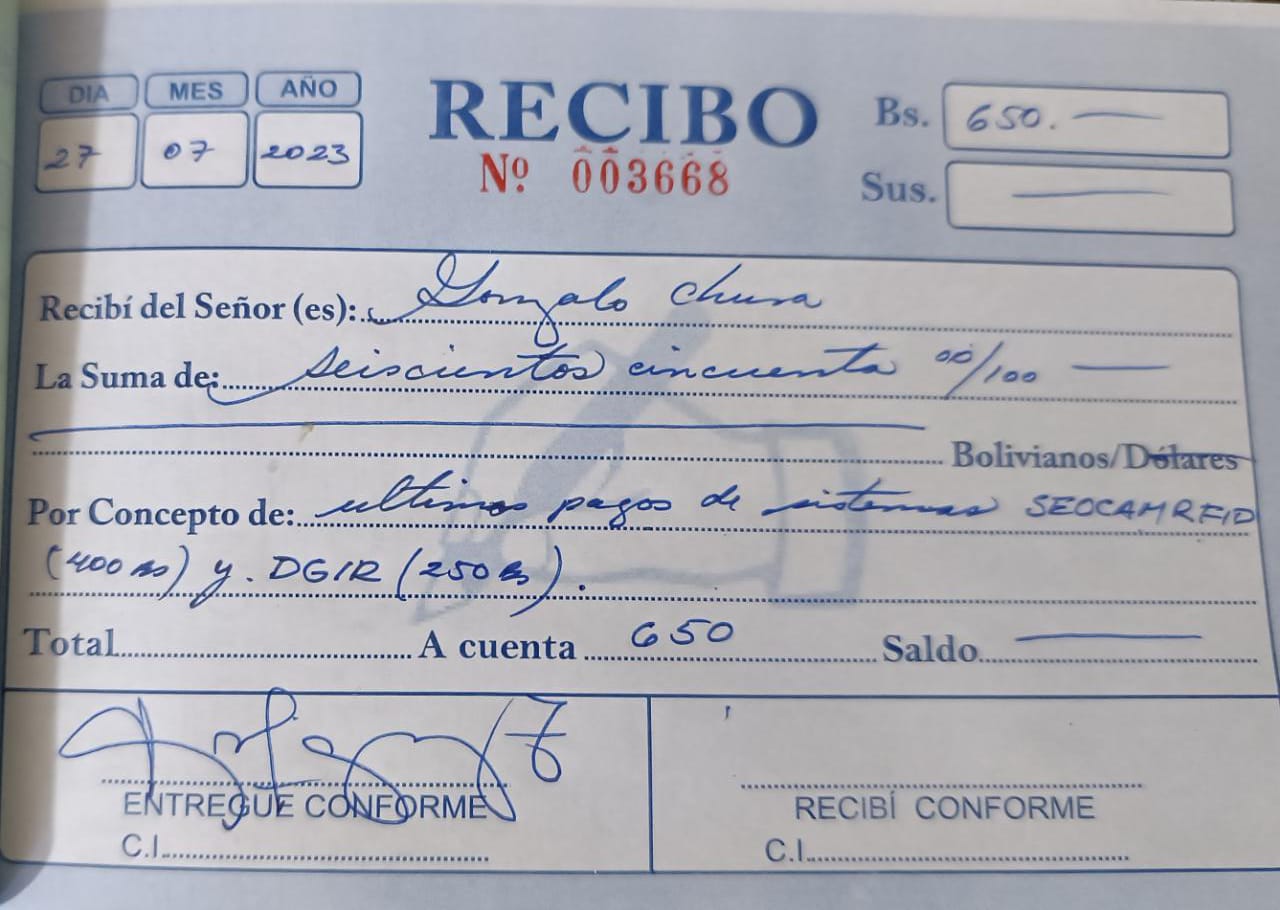 DIA MES AÑO
27 07 2023
RECIBO
Nº 003668
Bs. 650.
Sus.
Recibí del Señor (es): Gonzalo Chura
La Suma de: seiscientos cincuenta 00/100
Bolivianos/Dólares
Por Concepto de: ultimos pagos de sistemas SEOCAMRFID
(400 Bs) y. DGIR (250 Bs).
Total A cuenta 650 Saldo
ENTREGUE CONFORME
C.I.
RECIBÍ CONFORME
C.I.